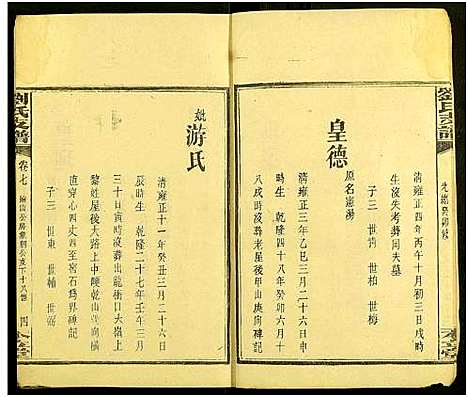 劉氏支譜
光緒癸卯修
清雍正四年丙午十月初三日戌時
生沒失考葬同夫墓
子三 世尚 世柏 世梅
皇德
原名憲湯
清雍正三年乙巳三月二十六日
時生 乾隆四十八年癸卯六月十
八戌時沒葬老屋後甲山庚向碑記
妣游氏
清雍正十一年癸丑三月二十六日
辰時生 乾隆二十七年壬午三月
三十日寅時沒葬出龍衝口大嶺上
黎姓屋後大路上中陳乾山巽向橫
直穿心四丈四至宮石為界碑記
子三 世東 世柚 世
劉氏支譜
卷七
四